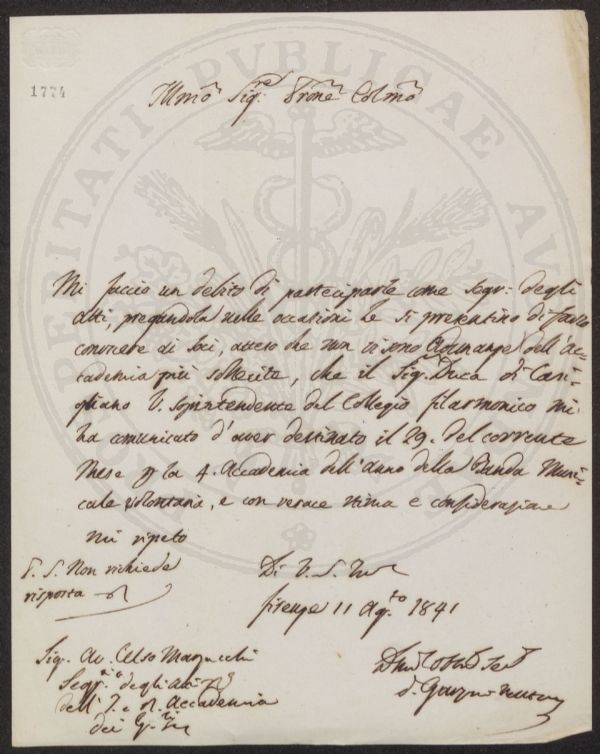 1774
Illmo Sigre Prone Colmo
Mi faccio un debito di parteciparle come Segr. degli
Atti, pregandola nelle occasioni che si presentino di farlo
conoscere ai Soci, atteso che non vi sono Adunanze dell'Ac-
cademia più sollecite, che il Sigr. Duca di Casi-
gliano V. Sopintendente del Collegio filarmonico mi
ha comunicato d'aver destinato il 29. del corrente
Mese la 4. Accademia dell'anno della Banda Musi-
cale volontaria, e con verace stima e considerazione
mi ripeto
P. S. Non richiede
risposta
Di V. S. Illma
Firenze 11 Agto 1841
Sig. Av. Celso Marzucchi
Segrio degli Atti
dell' I. e R. Accademia
dei